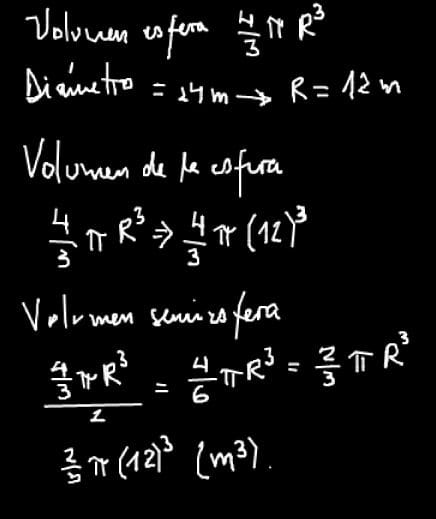 Volumen esfera 4/3 π R³
Diámetro = 24 m → R = 12 m
Volumen de la esfera
4/3 π R³ ⇒ 4/3 π (12)³
Volumen semiesfera
(4/3 π R³)/2 = 4/6 π R³ = 2/3 π R³
2/3 π (12)³ (m³).